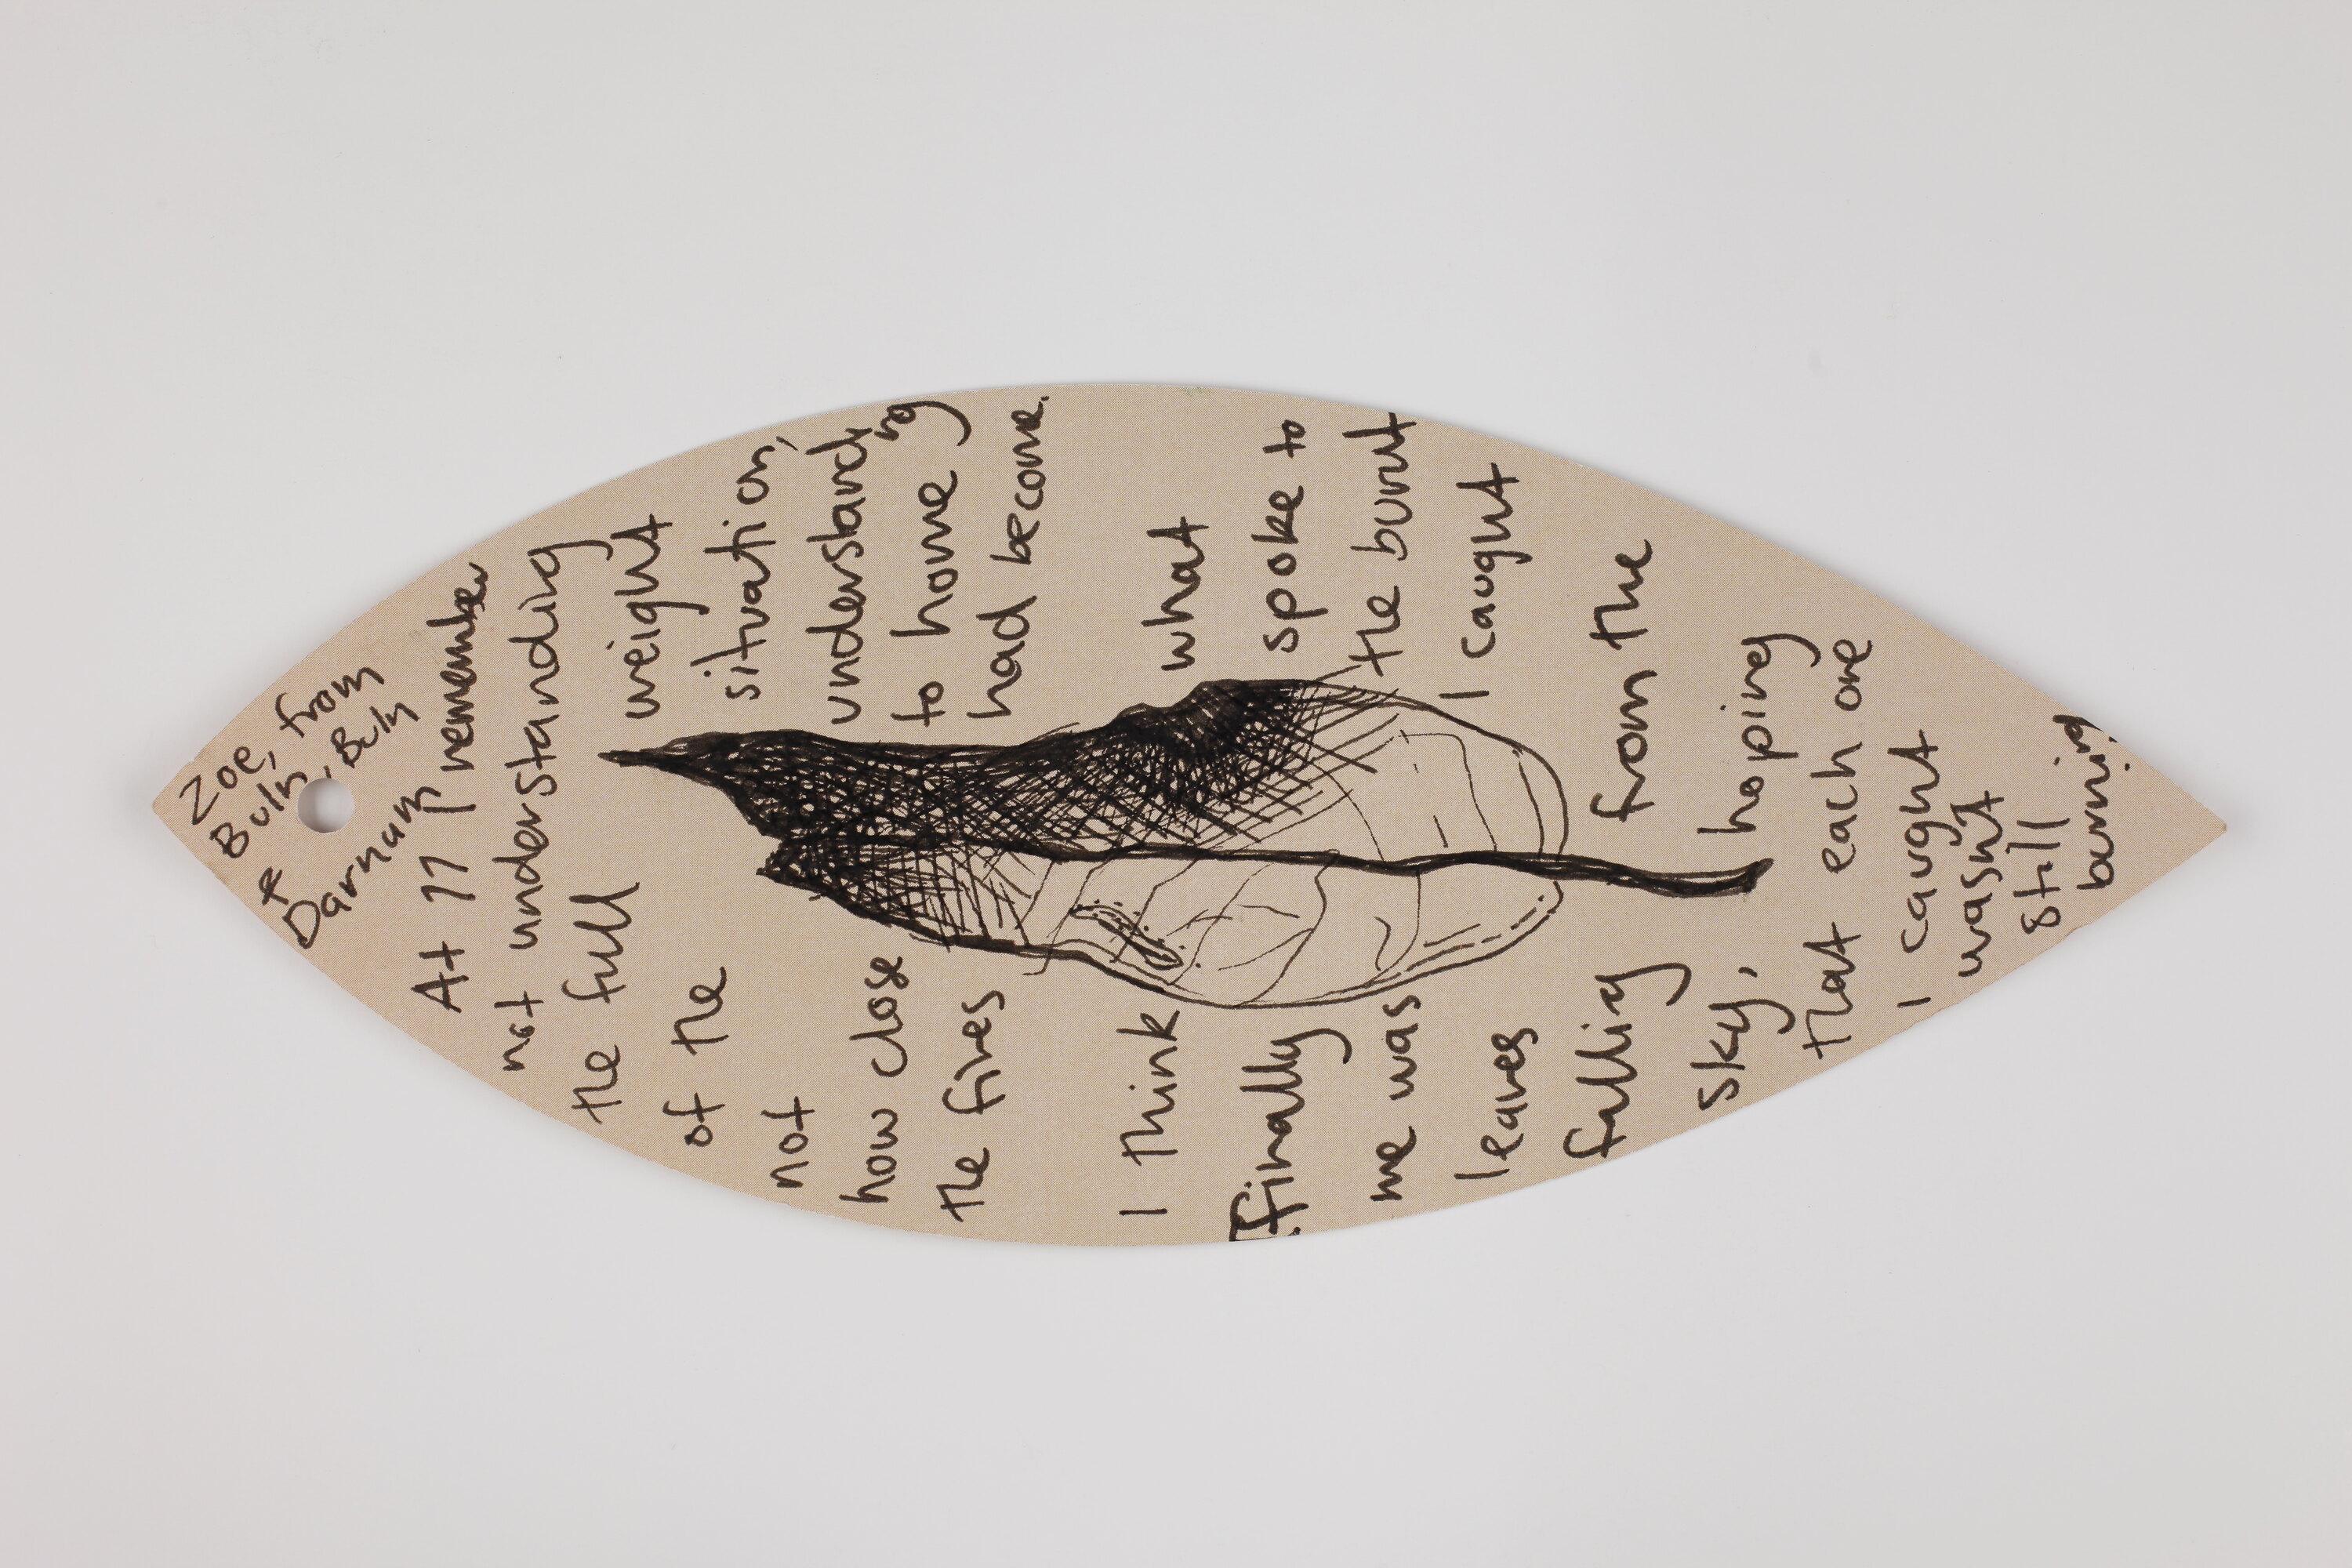 Zoe, from
Buln, Buln
&
Darnum
At 11 I remember
not understanding
the full weight
of the situation,
not understanding
how close to home
the fires had become.
I think what
finally spoke to
me was the burnt
leaves I caught
falling from the
sky, hoping
that each one
I caught
wasnt
still
burning.